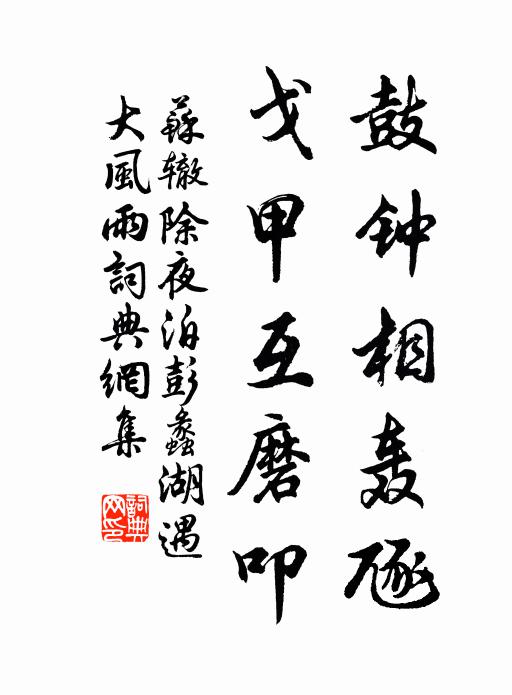 鼓钟相轰豗
戈甲互磨叩
蘇辙除夜泊彭蠡湖遇
大風雨詞典網集
詞典網印